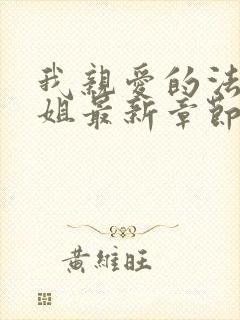 我親愛的法
姐最新章節
黃維旺